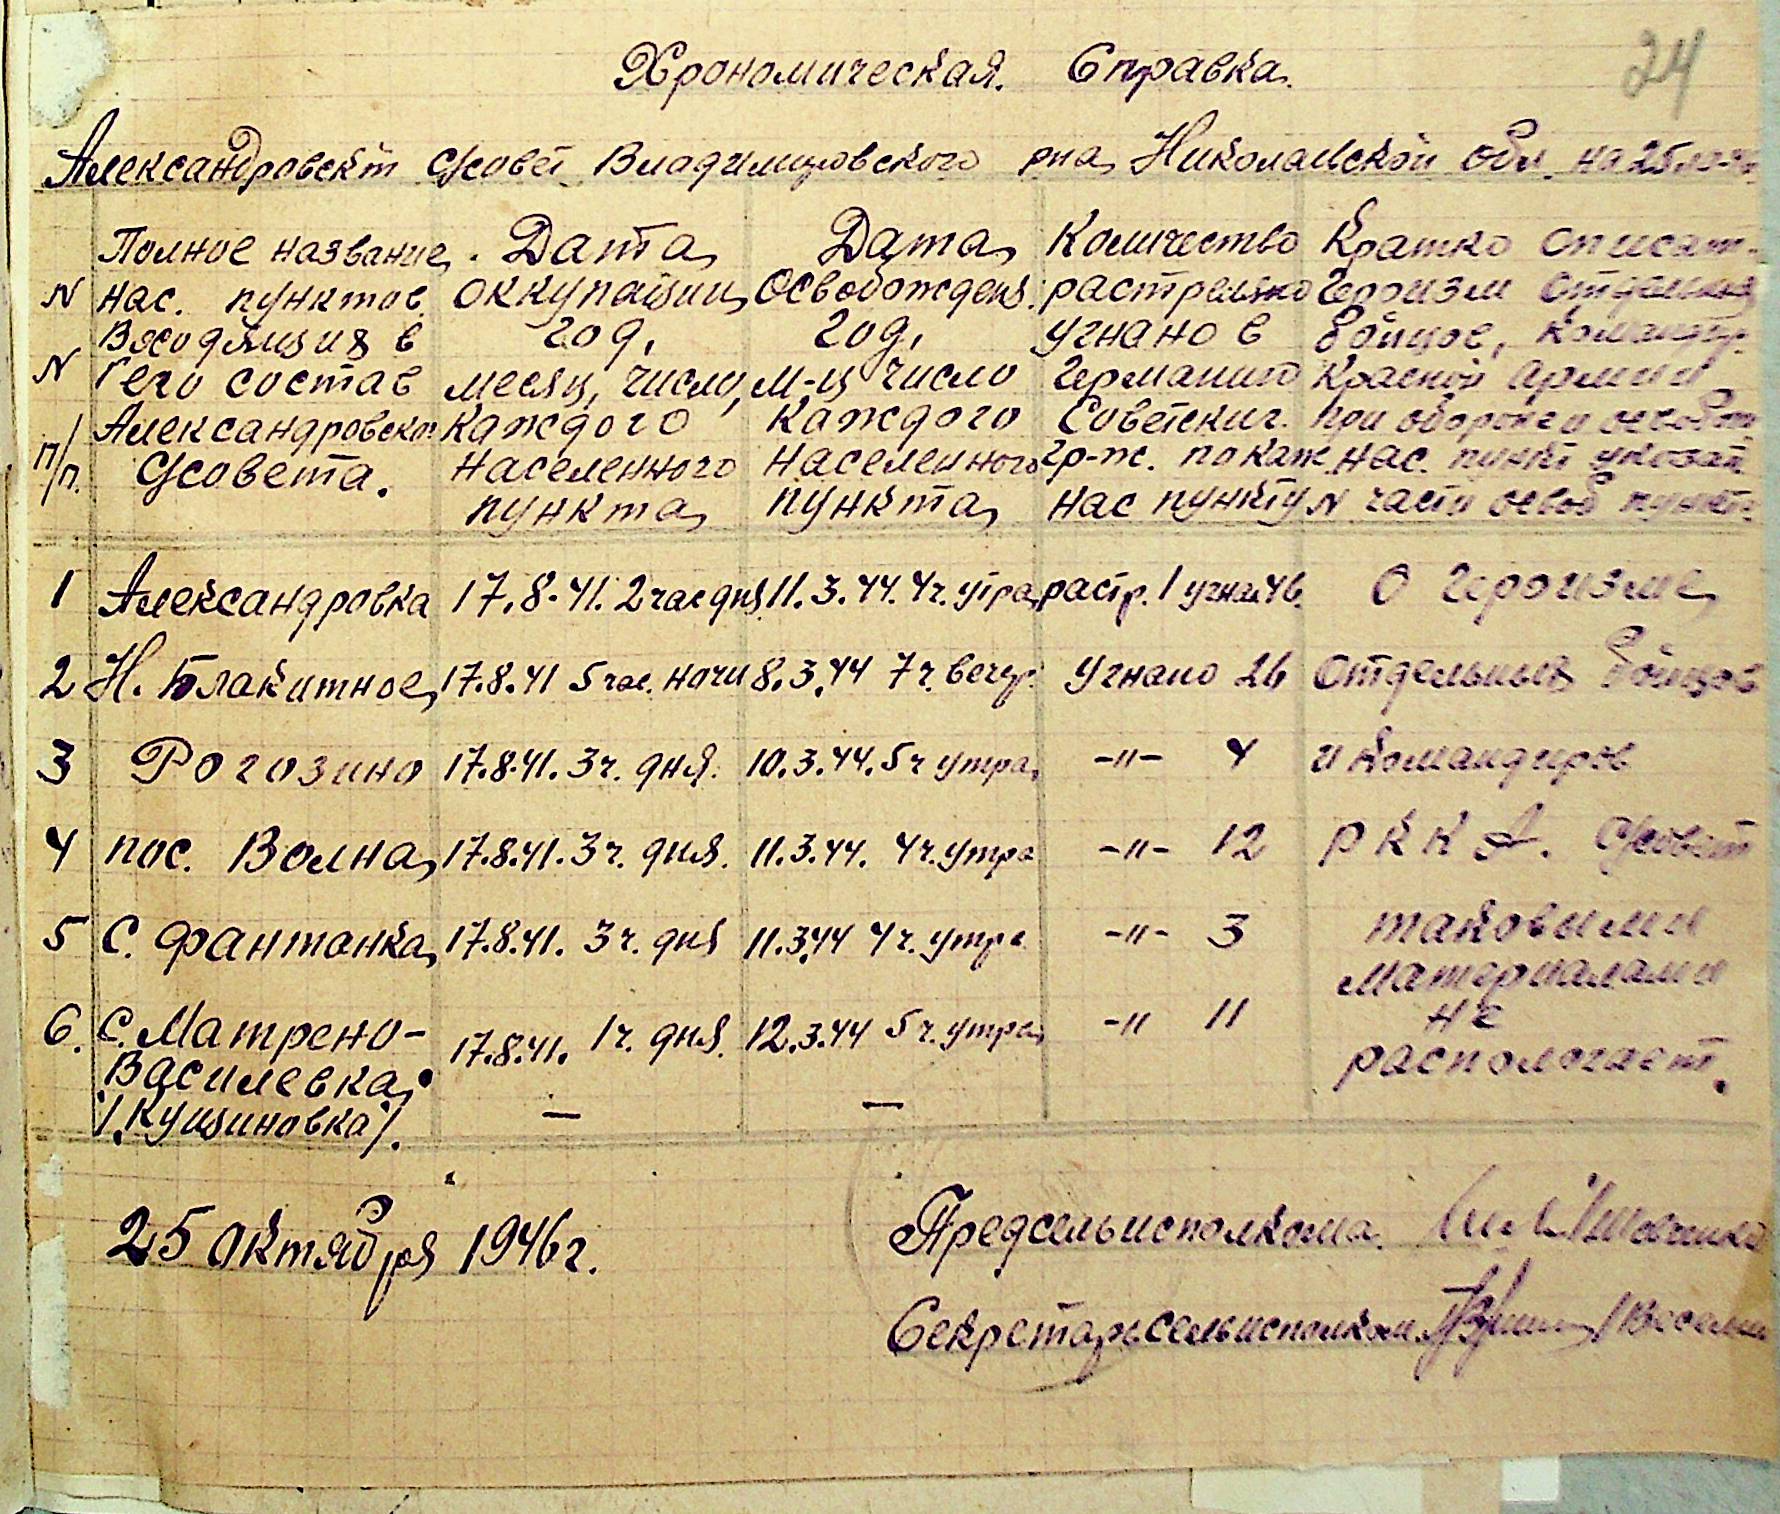 24
Хрономическая. Справка.
Александровский с/совет Владимировского рна Николаевской обл. на 25
N N п/п.
Полное название нас. пунктов входящих в его состав Александровског с/совета.
Дата оккупации год, месяц, число, каждого населенного пункта
Дата освобожден. год, м-ц число каждого населенного пункта
Количество растреляно угнано в Германию Советских. гр-н. по каж нас пункту
Кратко описат. героизм отдельных бойцов, командир. Красной Армии при обороне и освобож нас. пункт указат N части освоб пункт
1 Александровка 17.8.41. 2 час дня 11.3.44. 4ч. утра растр. 1 угнан 46. О героизме
2 Н. Блакитное 17.8.41 5 час. ночи 8.3.44 7 ч. вечер. угнано 26 отдельных бойцов
3 Рогозино 17.8.41. 3ч. дня. 10.3.44. 5ч утра -"- 4 и командиров
4 пос. Волна 17.8.41. 3ч. дня. 11.3.44. 4ч. утра -"- 12 РККА. с/совет
5 С. Фантанка 17.8.41. 3ч. дня 11.3.44 4ч. утра -"- 3 таковыми
материалами
6. С. Матрено- 17.8.41. 1ч. дня. 12.3.44 5ч. утра -" 11 не
Василевка распологает.
/.Кущиновка/. — —
25 Октября 1946г.
Предсельисполкома.
Секретарь сельисполком.